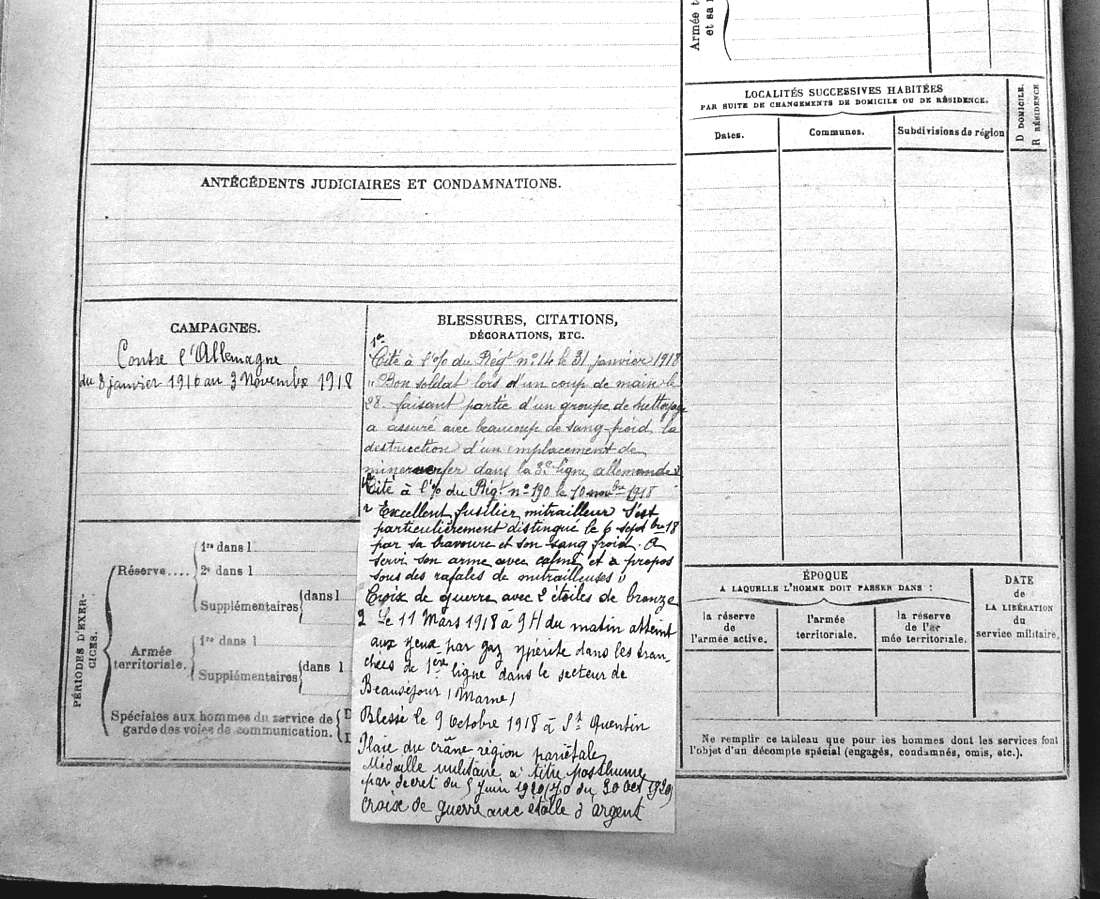 Armée t
et sa
LOCALITÉS SUCCESSIVES HABITÉES
PAR SUITE DE CHANGEMENTS DE DOMICILE OU DE RÉSIDENCE.
Dates.
Communes.
Subdivisions de région
D DOMICILE.
R RÉSIDENCE
ANTÉCÉDENTS JUDICIAIRES ET CONDAMNATIONS.
CAMPAGNES.
Contre l'Allemagne
du 8 janvier 1916 au 3 Novembre 1918
BLESSURES, CITATIONS,
DÉCORATIONS, ETC.
Cité à l'% du Régt n° 14 le 31 janvier 1918
"Bon soldat lors d'un coup de main le
28. faisant partie d'un groupe de nettoyage
a assuré avec beaucoup de sang-froid, la
destruction d'un emplacement de
dans la 3e ligne allemande"
Cité à l'% du Régt n° 190 le 10 novbre 1918
" Excellent fusilier mitrailleur s'est
particulièrement distingué le 6 septbre 18
par sa bravoure et son sang froid. A
servi son arme avec calme et à propos
sous des rafales de mitrailleuses "
Croix de guerre avec 2 étoiles de bronze
2 Le 11 Mars 1918 à 9H du matin atteint
aux yeux par gaz ypérite dans les tran-
chées de 1ère ligne dans le secteur de
Beauséjour (Marne)
Blessé le 9 Octobre 1918 à St Quentin
Plaie du crâne région pariétale
Médaille militaire à titre posthume
par décret du 5 juin 1920 (JO du 30 Oct 1920)
Croix de guerre avec étoile d'argent
PÉRIODES D'EXER-
CICES.
Réserve....
1re dans l
2e dans l
Supplémentaires
dans l
Armée
territoriale.
1re dans l
Supplémentaires
dans l
Spéciales aux hommes du service de
garde des voies de communication.
ÉPOQUE
A LAQUELLE L'HOMME DOIT PASSER DANS :
la réserve
de
l'armée active.
l'armée
territoriale.
la réserve
de l'ar
mée territoriale.
DATE
de
LA LIBÉRATION
du
service militaire.
Ne remplir ce tableau que pour les hommes dont les services font
l'objet d'un décompte spécial (engagés, condamnés, omis, etc.).